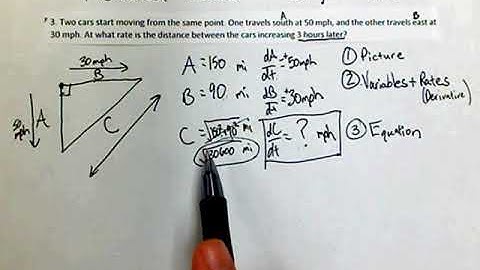 A B
3. Two cars start moving from the same point. One travels south at 50 mph, and the other travels east at
30 mph. At what rate is the distance between the cars increasing 3 hours later?
30 mph
B
50 mph
A
C
A = 150 mi dA/dt = +50mph
B = 90 mi dB/dt = +30mph
C = √150²+90² mi dC/dt = ? mph
√30600 mi
① Picture
② Variables + Rates
(Derivative)
③ Equation